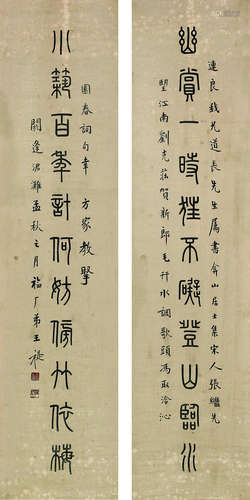 連良錢兄道長先生屬書弇山居士集宋人張繼先
幽賞一時狂不礙登山臨水
望江南劉克莊賀新郎毛幵水調歌頭馮取洽沁
園春詞句幸 方家教掔
小築百年計何妨傍竹依梅
閼逢涒灘孟秋之月福厂弟王禔